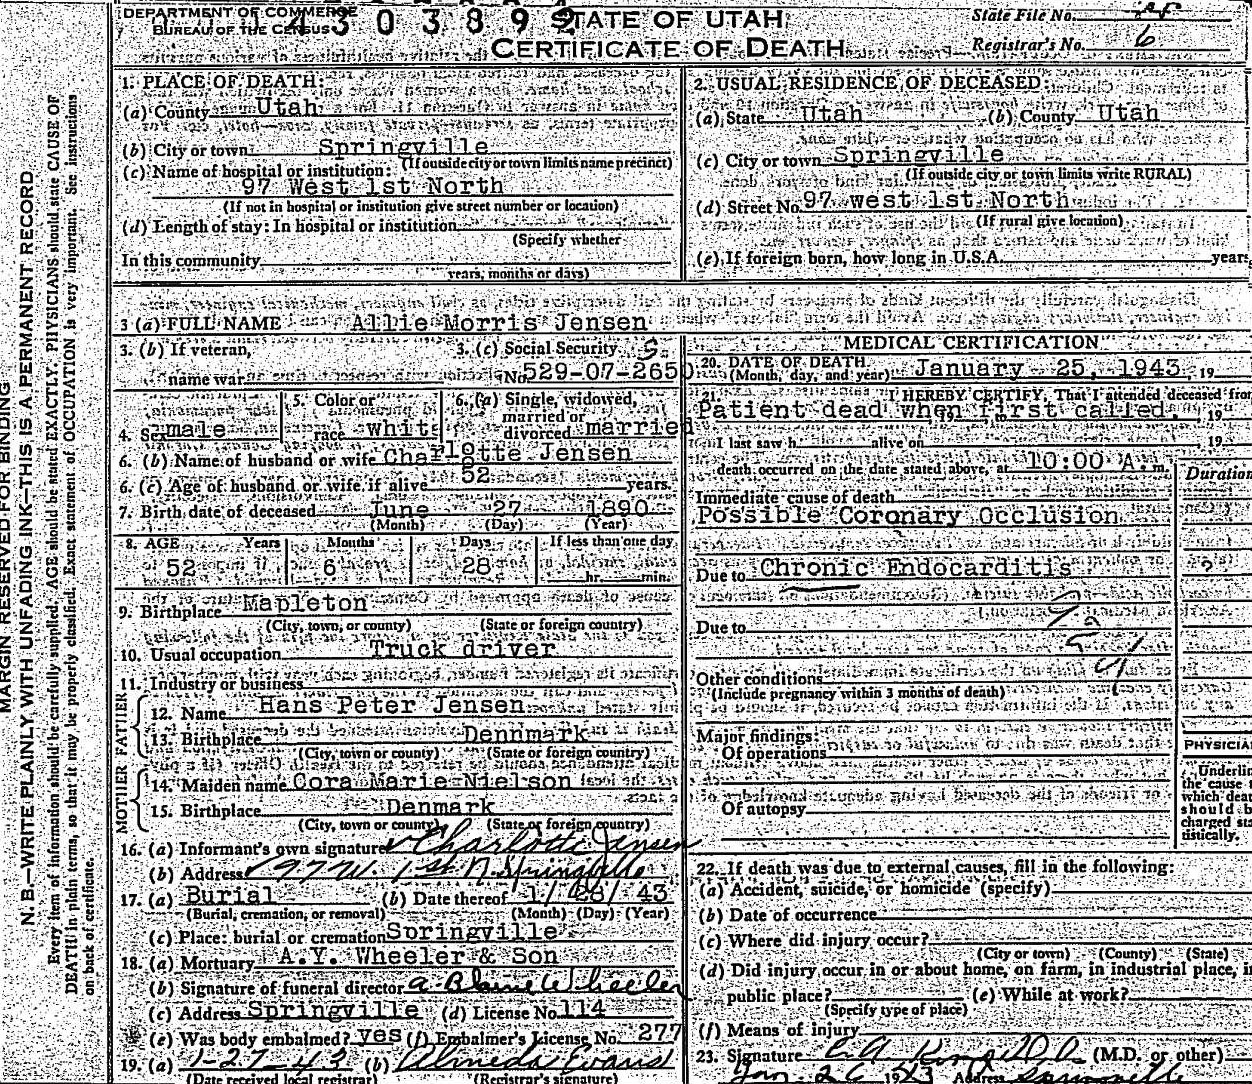 DEPARTMENT OF COMMERCE
BUREAU OF THE CENSUS
4 3 0 3 8 9 2
STATE OF UTAH
CERTIFICATE OF DEATH
State File No.
Registrar's No. 6
MARGIN RESERVED FOR BINDING
N. B—WRITE PLAINLY, WITH UNFADING INK—THIS IS A PERMANENT RECORD
Every item of information should be carefully supplied. AGE should be stated EXACTLY. PHYSICIANS should state CAUSE OF
DEATH in plain terms, so that it may be properly classified. Exact statement of OCCUPATION is very important. See instructions
on back of certificate.
1. PLACE OF DEATH:
(a) County Utah
(b) City or town Springville
(If outside city or town limits name precinct)
(c) Name of hospital or institution:
97 West 1st North
(If not in hospital or institution give street number or location)
(d) Length of stay: In hospital or institution
(Specify whether
In this community
years, months or days)
2. USUAL RESIDENCE OF DECEASED:
(a) State Utah (b) County Utah
(c) City or town Springville
(If outside city or town limits write RURAL)
(d) Street No. 97 west 1st North
(If rural give location)
(e) If foreign born, how long in U.S.A. years
3 (a) FULL NAME Allie Morris Jensen
3. (b) If veteran,
name war
3. (c) Social Security
No. 529-07-2650
4. Sex male
5. Color or
race white
6. (a) Single, widowed,
married or
divorced married
6. (b) Name of husband or wife Charlotte Jensen
6. (c) Age of husband or wife if alive 52 years.
7. Birth date of deceased June 27 1890
(Month) (Day) (Year)
8. AGE Years Months Days If less than one day
52 6 28 hr. min.
9. Birthplace Mapleton
(City, town, or county) (State or foreign country)
10. Usual occupation Truck driver
11. Industry or business
FATHER
12. Name Hans Peter Jensen
13. Birthplace Dennmark
(City, town or county) (State or foreign country)
MOTHER
14. Maiden name Cora Marie Nielson
15. Birthplace Denmark
(City, town or county) (State or foreign country)
16. (a) Informant's own signature Charlotte Jensen
(b) Address 97 W. 1 st. N. Springville
17. (a) Burial (b) Date thereof 1/ 28/ 43
(Burial, cremation, or removal) (Month) (Day) (Year)
(c) Place: burial or cremation Springville
18. (a) Mortuary A.Y. Wheeler & Son
(b) Signature of funeral director A. Blaine Wheeler
(c) Address Springville (d) License No. 114
(e) Was body embalmed? yes (f) Embalmer's License No. 277
19. (a) 1-27-43 (b) Almeda Evans
(Date received local registrar) (Registrar's signature)
MEDICAL CERTIFICATION
20. DATE OF DEATH
(Month, day, and year) January 25, 1943, 19
21. I HEREBY CERTIFY, That I attended deceased from
Patient dead when first called. 19
I last saw h alive on , 19
death occurred on the date stated above, at 10:00 A.m.
Duration
Immediate cause of death
Possible Coronary Occlusion
Due to Chronic Endocarditis ?
Due to
Other conditions
(Include pregnancy within 3 months of death)
Major findings:
Of operations
Of autopsy
PHYSICIAN
Underline
the cause
which death
should b
charged sta
tistically.
22. If death was due to external causes, fill in the following:
(a) Accident, suicide, or homicide (specify)
(b) Date of occurrence
(c) Where did injury occur?
(City or town) (County) (State)
(d) Did injury occur in or about home, on farm, in industrial place, in
public place? (e) While at work?
(Specify type of place)
(f) Means of injury
23. Signature (M.D. or other)
Jan. 26 1943 Address Springville